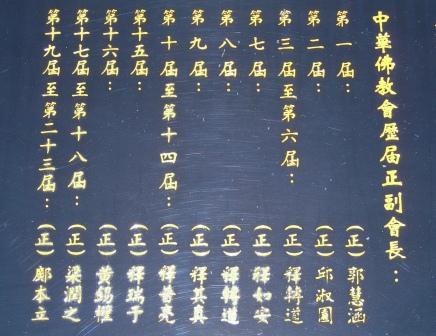 中華佛教會歷屆正副會長：
第一屆：（正）郭慧涵
第二屆：（正）邱淑園
第三屆至第六屆：（正）釋轉道
第七屆：（正）釋如安
第八屆：（正）釋轉道
第九屆：（正）釋其真
第十屆至第十四屆：（正）釋普亮
第十五屆：（正）釋瑞于
第十六屆：（正）黃錫權
第十七屆至第十八屆：（正）梁潤之
第十九屆至第二十三屆：（正）鄺本立